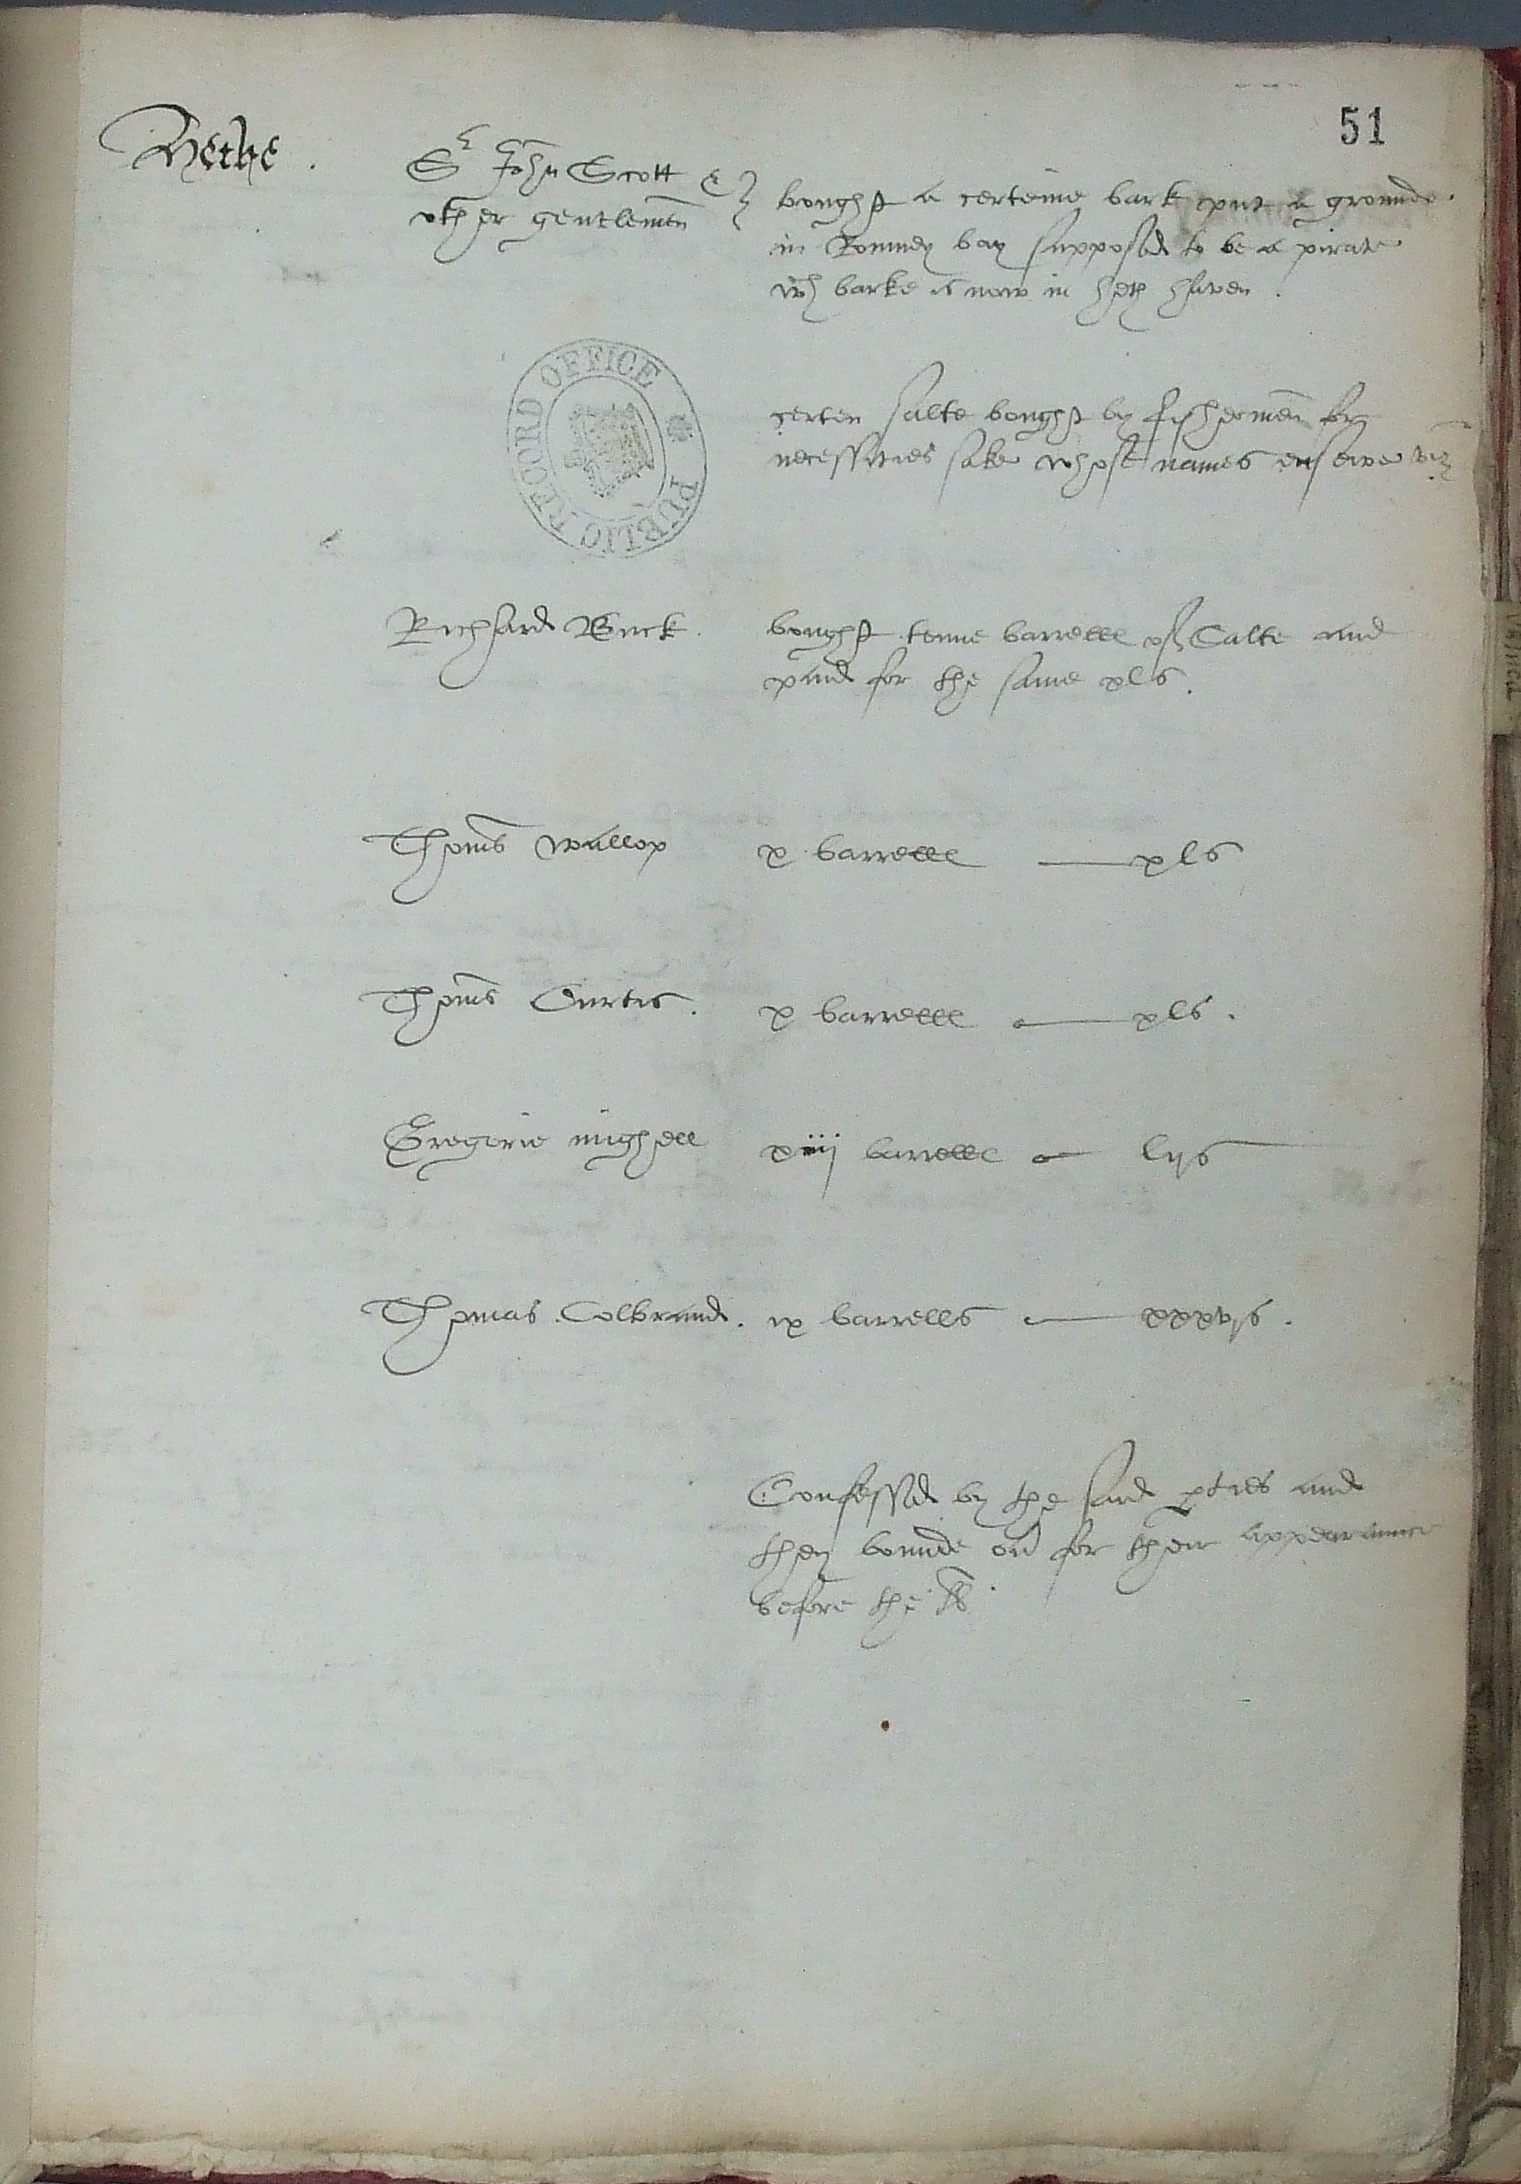 51
Hethe .
Sr John Scott &
other gentlemen
bought a certeine bark put a grounde .
in Romney bay supposed to be a pirate
wch barke is now in heth haven .
PUBLIC RECORD OFFICE
certen salte bought by fishermen for
necessities sake whose names ensewe viz
Richard Buck . bought tenne barrells of Salte and
paid for the same xls .
Thoms Wallop x barrells xls
Thoms Curtis . x barrells xls .
Gregorie mighell xiiij barrells lijs
Thomas Colbrand . ix barrells xxxvjs .
Confessed by the said pties and
they bounde for their appearaunce
before the